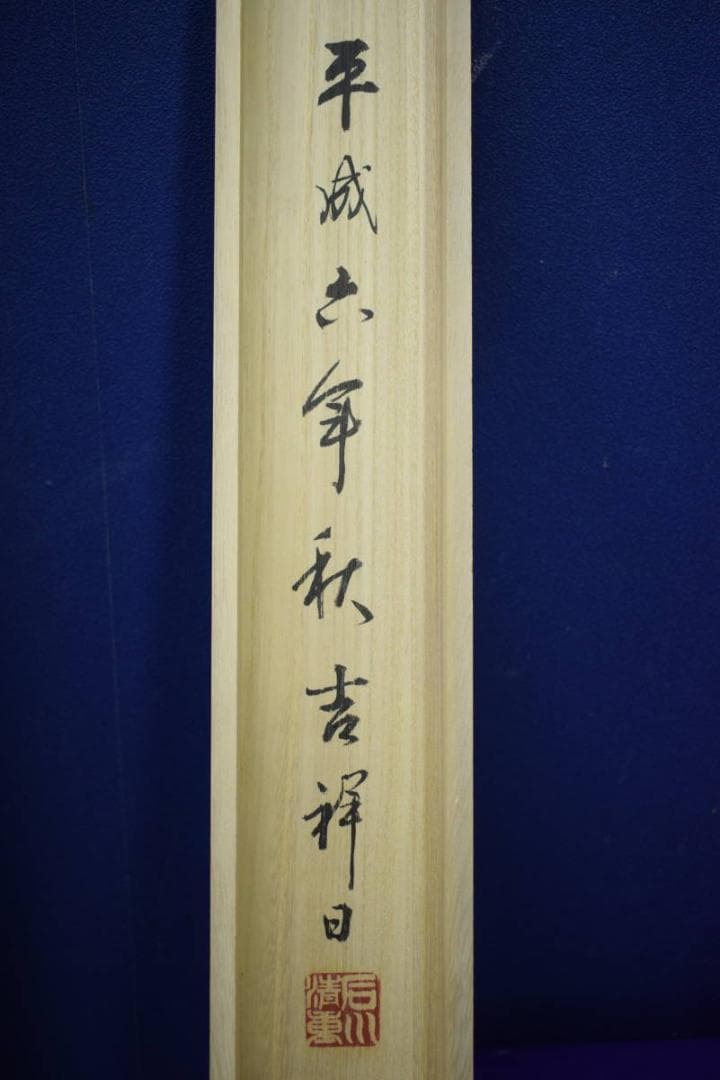 平成六年秋吉祥日